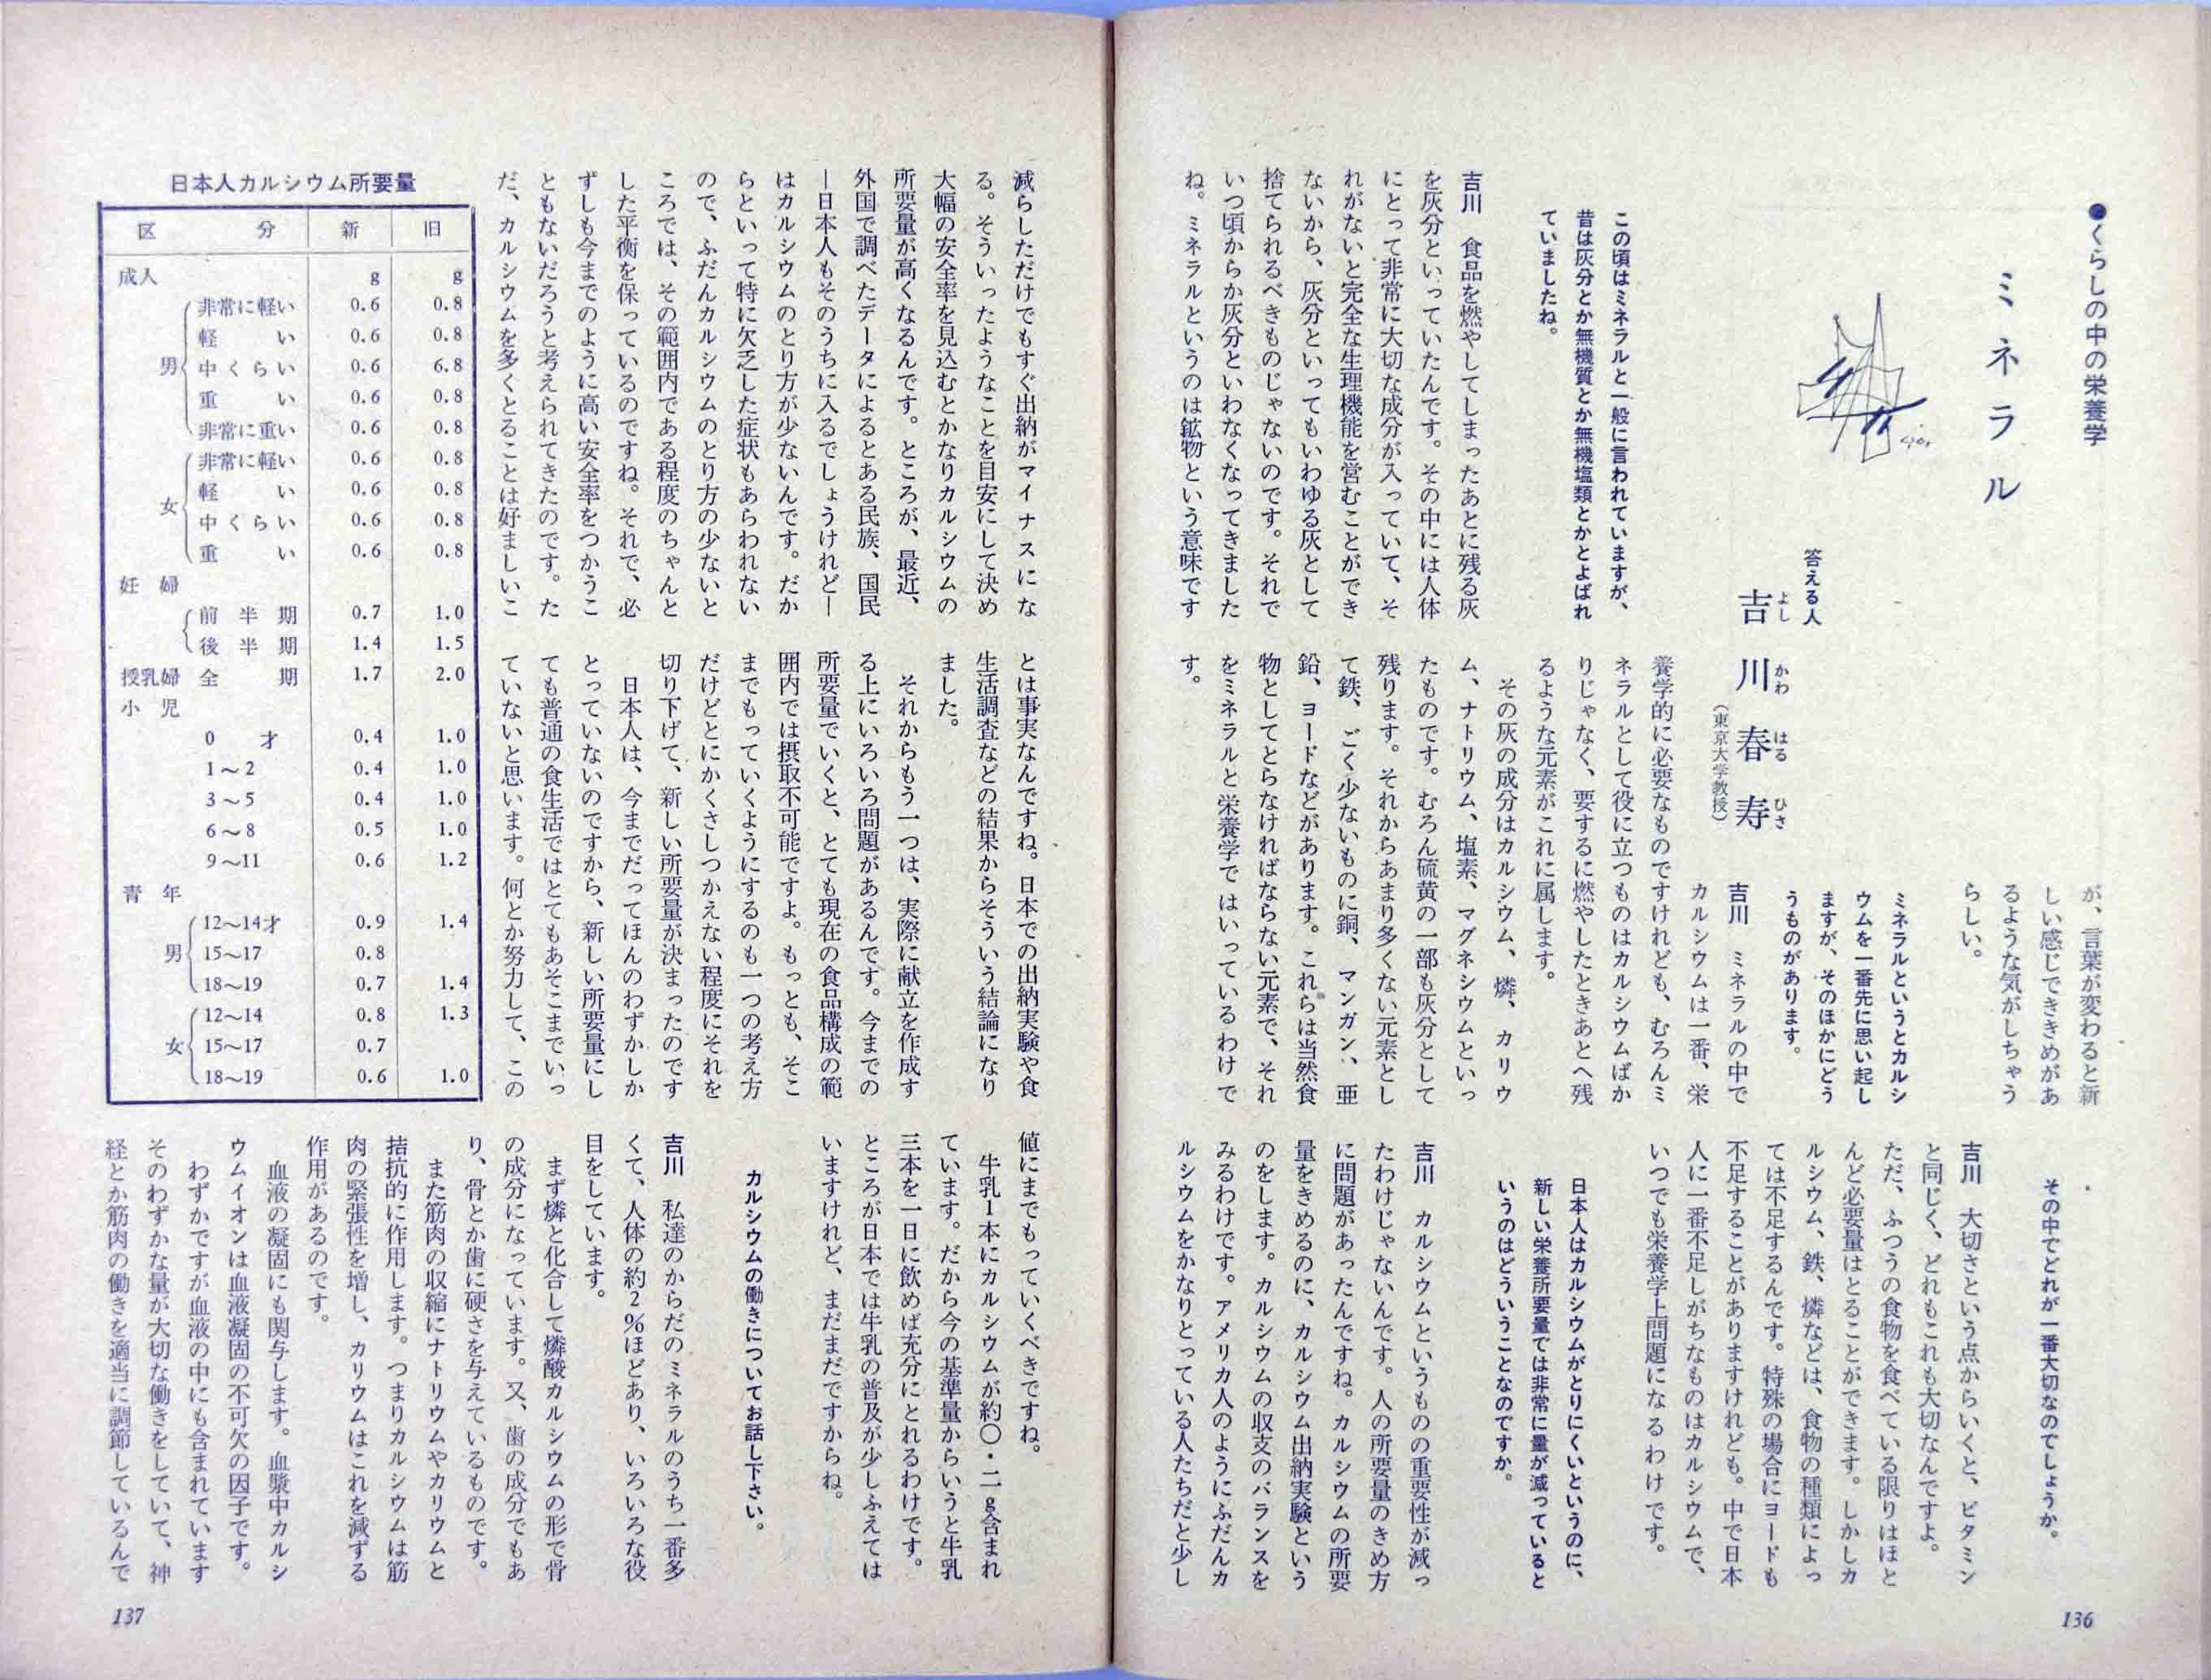 ●くらしの中の栄養学
ミネラル
答える人
吉川春寿
よし かわ はる ひさ
（東京大学教授）
この頃はミネラルと一般に言われていますが、
昔は灰分とか無機質とか無機塩類とかとよばれ
ていましたね。
吉川　食品を燃やしてしまったあとに残る灰
を灰分といっていたんです。その中には人体
にとって非常に大切な成分が入っていて、そ
れがないと完全な生理機能を営むことができ
ないから、灰分といってもいわゆる灰として
捨てられるべきものじゃないのです。それで
いつ頃からか灰分といわなくなってきました
ね。ミネラルというのは鉱物という意味です
が、言葉が変わると新
しい感じでききめがあ
るような気がしちゃう
らしい。
ミネラルというとカルシ
ウムを一番先に思い起し
ますが、そのほかにどう
うものがあります。
吉川　ミネラルの中で
カルシウムは一番、栄
養学的に必要なものですけれども、むろんミ
ネラルとして役に立つものはカルシウムばか
りじゃなく、要するに燃やしたときあとへ残
るような元素がこれに属します。
その灰の成分はカルシウム、燐、カリウ
ム、ナトリウム、塩素、マグネシウムといっ
たものです。むろん硫黄の一部も灰分として
残ります。それからあまり多くない元素とし
て鉄、ごく少ないものに銅、マンガン、亜
鉛、ヨードなどがあります。これらは当然食
物としてとらなければならない元素で、それ
をミネラルと栄養学ではいっているわけで
す。
その中でどれが一番大切なのでしょうか。
吉川　大切さという点からいくと、ビタミン
と同じく、どれもこれも大切なんですよ。
ただ、ふつうの食物を食べている限りはほと
んど必要量はとることができます。しかしカ
ルシウム、鉄、燐などは、食物の種類によっ
ては不足するんです。特殊の場合にヨードも
不足することがありますけれども。中で日本
人に一番不足しがちなものはカルシウムで、
いつでも栄養学上問題になるわけです。
日本人はカルシウムがとりにくいというのに、
新しい栄養所要量では非常に量が減っていると
いうのはどういうことなのですか。
吉川　カルシウムというものの重要性が減っ
たわけじゃないんです。人の所要量のきめ方
に問題があったんですね。カルシウムの所要
量をきめるのに、カルシウム出納実験という
のをします。カルシウムの収支のバランスを
みるわけです。アメリカ人のようにふだんカ
ルシウムをかなりとっている人たちだと少し
136
減らしただけでもすぐ出納がマイナスにな
る。そういったようなことを目安にして決め
大幅の安全率を見込むとかなりカルシウムの
所要量が高くなるんです。ところが、最近、
外国で調べたデータによるとある民族、国民
―日本人もそのうちに入るでしょうけれど―
はカルシウムのとり方が少ないんです。だか
らといって特に欠乏した症状もあらわれない
ので、ふだんカルシウムのとり方の少ないと
ころでは、その範囲内である程度のちゃんと
した平衡を保っているのですね。それで、必
ずしも今までのように高い安全率をつかうこ
ともないだろうと考えられてきたのです。た
だ、カルシウムを多くとることは好ましいこ
とは事実なんですね。日本での出納実験や食
生活調査などの結果からそういう結論になり
ました。
それからもう一つは、実際に献立を作成す
る上にいろいろ問題があるんです。今までの
所要量でいくと、とても現在の食品構成の範
囲内では摂取不可能ですよ。もっとも、そこ
までもっていくようにするのも一つの考え方
だけどとにかくさしつかえない程度にそれを
切り下げて、新しい所要量が決まったのです
日本人は、今までだってほんのわずかしか
とっていないのですから、新しい所要量にし
ても普通の食生活ではとてもあそこまでいっ
ていないと思います。何とか努力して、この
値にまでもっていくべきですね。
牛乳1本にカルシウムが約〇・二g含まれ
ています。だから今の基準量からいうと牛乳
三本を一日に飲めば充分にとれるわけです。
ところが日本では牛乳の普及が少しふえては
いますけれど、まだまだですからね。
カルシウムの働きについてお話し下さい。
吉川　私達のからだのミネラルのうち一番多
くて、人体の約2％ほどあり、いろいろな役
目をしています。
まず燐と化合して燐酸カルシウムの形で骨
の成分になっています。又、歯の成分でもあ
り、骨とか歯に硬さを与えているものです。
また筋肉の収縮にナトリウムやカリウムと
拮抗的に作用します。つまりカルシウムは筋
肉の緊張性を増し、カリウムはこれを減ずる
作用があるのです。
血液の凝固にも関与します。血漿中カルシ
ウムイオンは血液凝固の不可欠の因子です。
わずかですが血液の中にも含まれています
そのわずかな量が大切な働きをしていて、神
経とか筋肉の働きを適当に調節しているんで
日本人カルシウム所要量
区分 新 旧
成人 g g
男 非常に軽い 0.6 0.8
軽い 0.6 0.8
中くらい 0.6 6.8
重い 0.6 0.8
非常に重い 0.6 0.8
女 非常に軽い 0.6 0.8
軽い 0.6 0.8
中くらい 0.6 0.8
重い 0.6 0.8
妊婦
前半期 0.7 1.0
後半期 1.4 1.5
授乳婦 全期 1.7 2.0
小児
0才 0.4 1.0
1～2 0.4 1.0
3～5 0.4 1.0
6～8 0.5 1.0
9～11 0.6 1.2
青年
男 12～14才 0.9 1.4
15～17 0.8
18～19 0.7 1.4
女 12～14 0.8 1.3
15～17 0.7
18～19 0.6 1.0
137